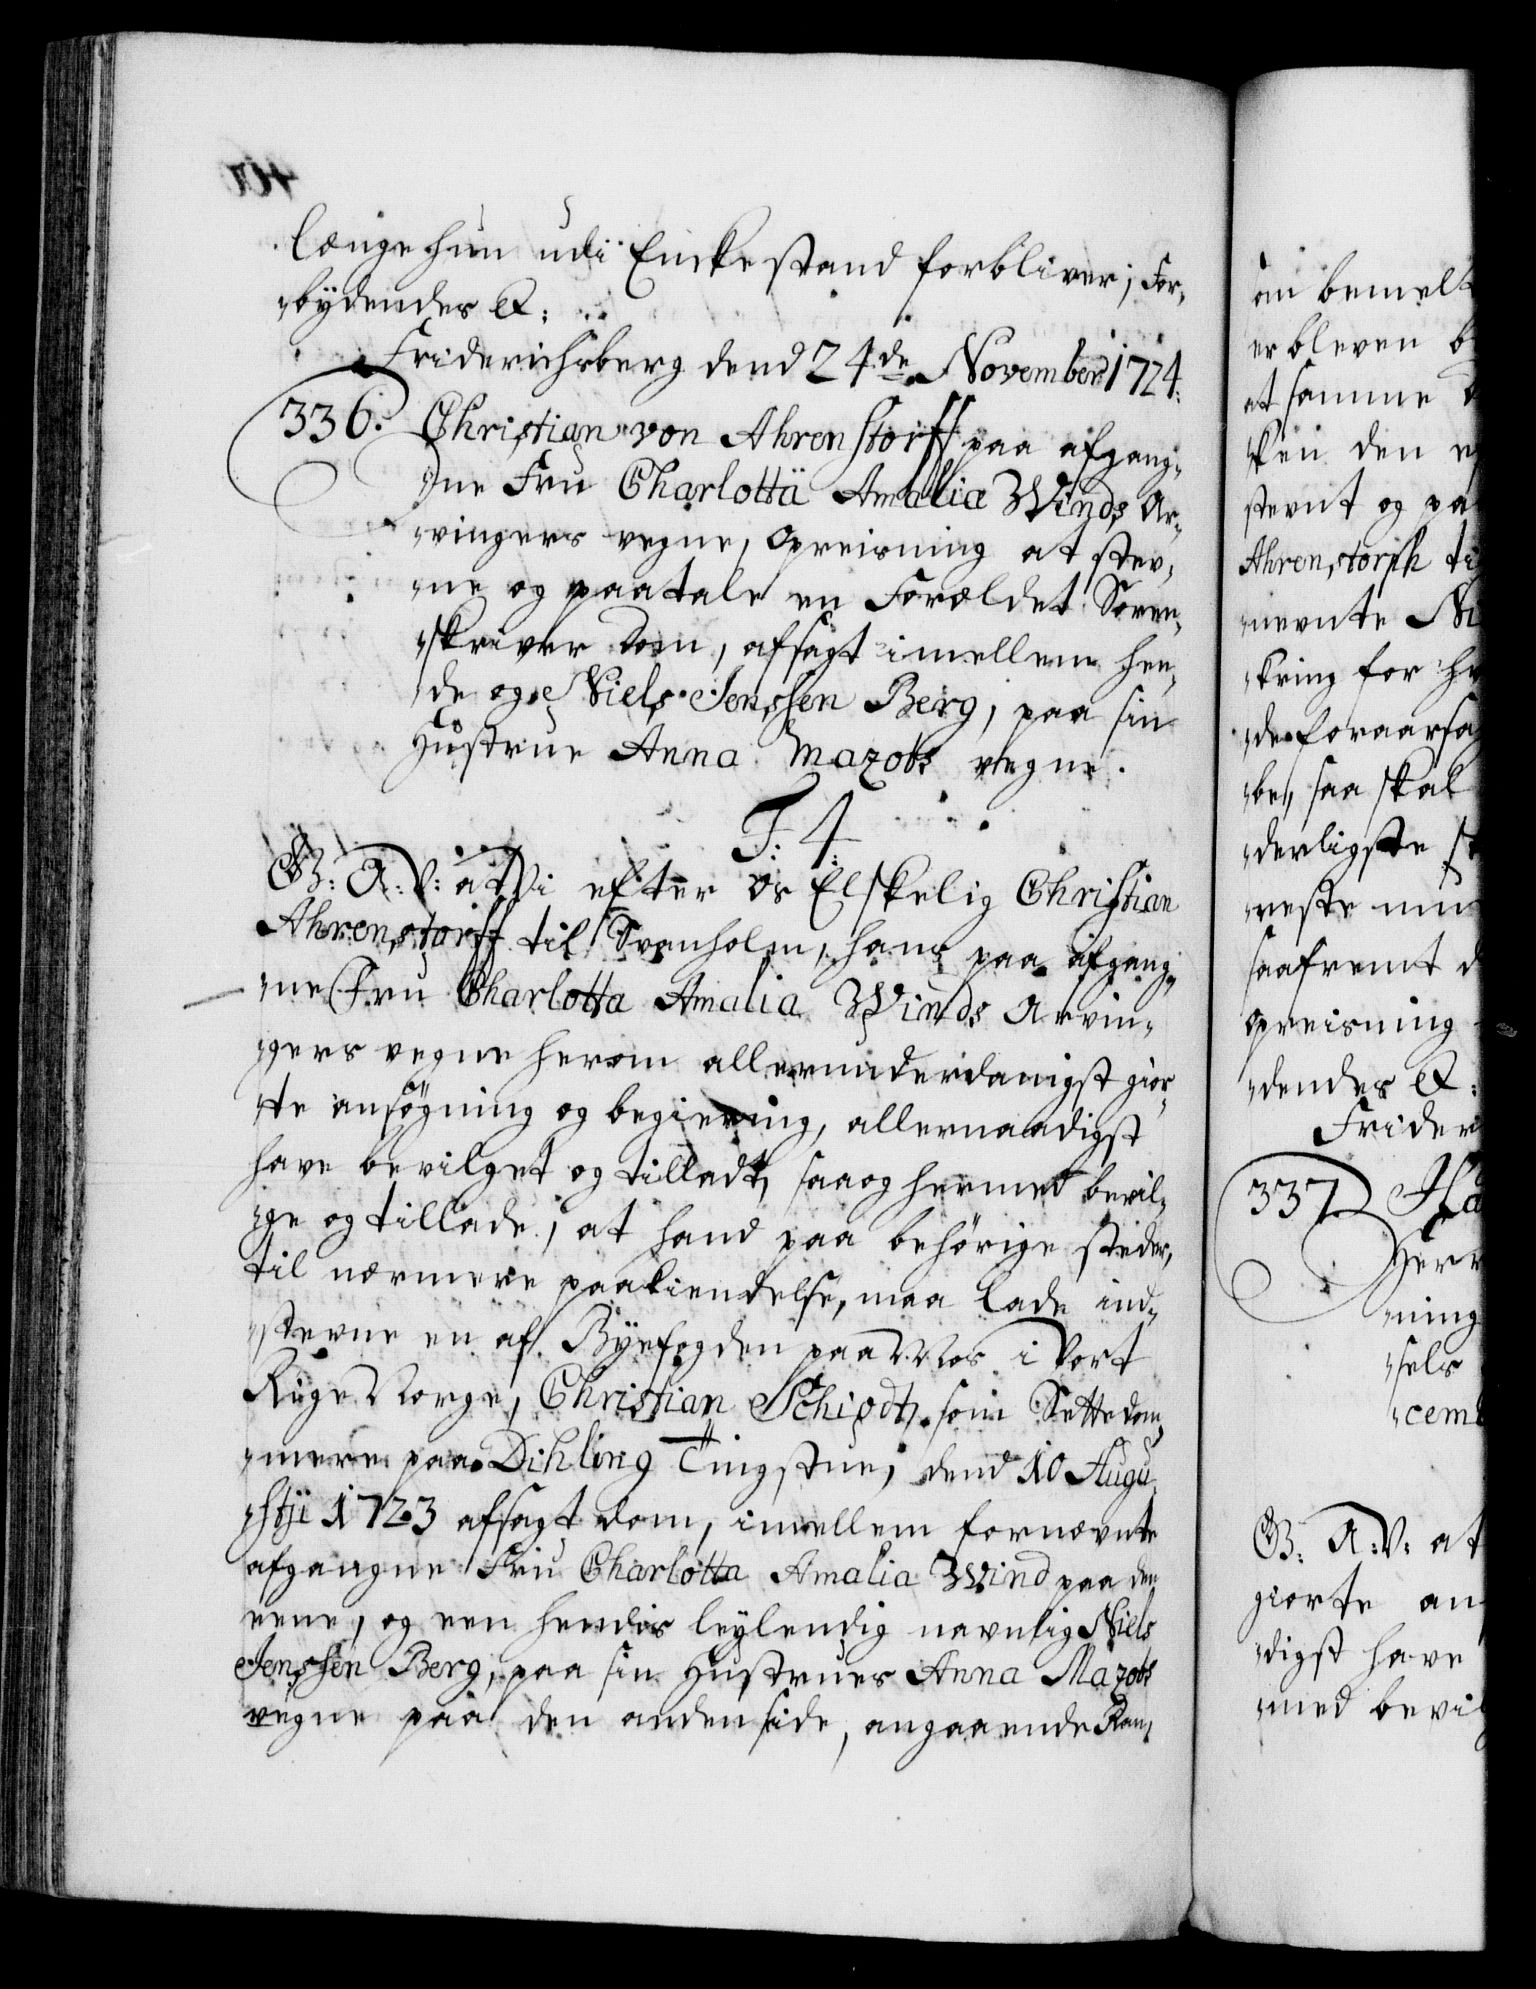 længe hun udi Enckestand forbliver; For-
bydendes &:
Friderichsberg dend 24de November 1724.
336. Christian von Ahrenstorff paa afgang-
ne Fru Charlotta Amalia Winds Ar-
vingers vegne, Opreisning at stev-
ne og paatale en Forældet Soren-
skriver dom, afsagt imellem hen-
de og Niels Jenssen Berg, paa sin
Hustrue Anna Mazobs vegne.
F. 4.
G: A: V: at Vi efter Os Elskelig Christian
Ahrenstorff til Svanholm, hans paa afgang-
ne Fru Charlotta Amalia Winds Arvin-
gers vegne herom allerunderdanigst gior-
te ansøgning og begiering, allernaadigst
have bevilget og tilladt, saa og hermed bevil-
ge og tillade, at hand paa behørige steder,
til nærmere paakiendelse, maa lade ind-
stevne en af Byefogden paa Mos i Vort
Rige Norge, Christian Schiødt, som Sættedom-
mere paa Dihling Tingstue, dend 10 Augu-
stji 1723 afsagt dom, imellem fornævnte
afgangne Fru Charlotta Amalia Wind paa den
eene, og een hendis leylending navnlig Niels
Jenssen Berg, paa sin Hustrues Anna Mazobs
vegne paa den anden side, angaaende Ran-
om bemelt
er bleven
at samme
den
stevnt og
Ahrenstorph
nevnte
kring for
de foraarsag
be, saa skal
derligste
neste
saafremt
Opreisning
dendes &:
Frider
337
Herr
ning
sels
cem
G: A: V: at
giorte an
digst have
med bevil